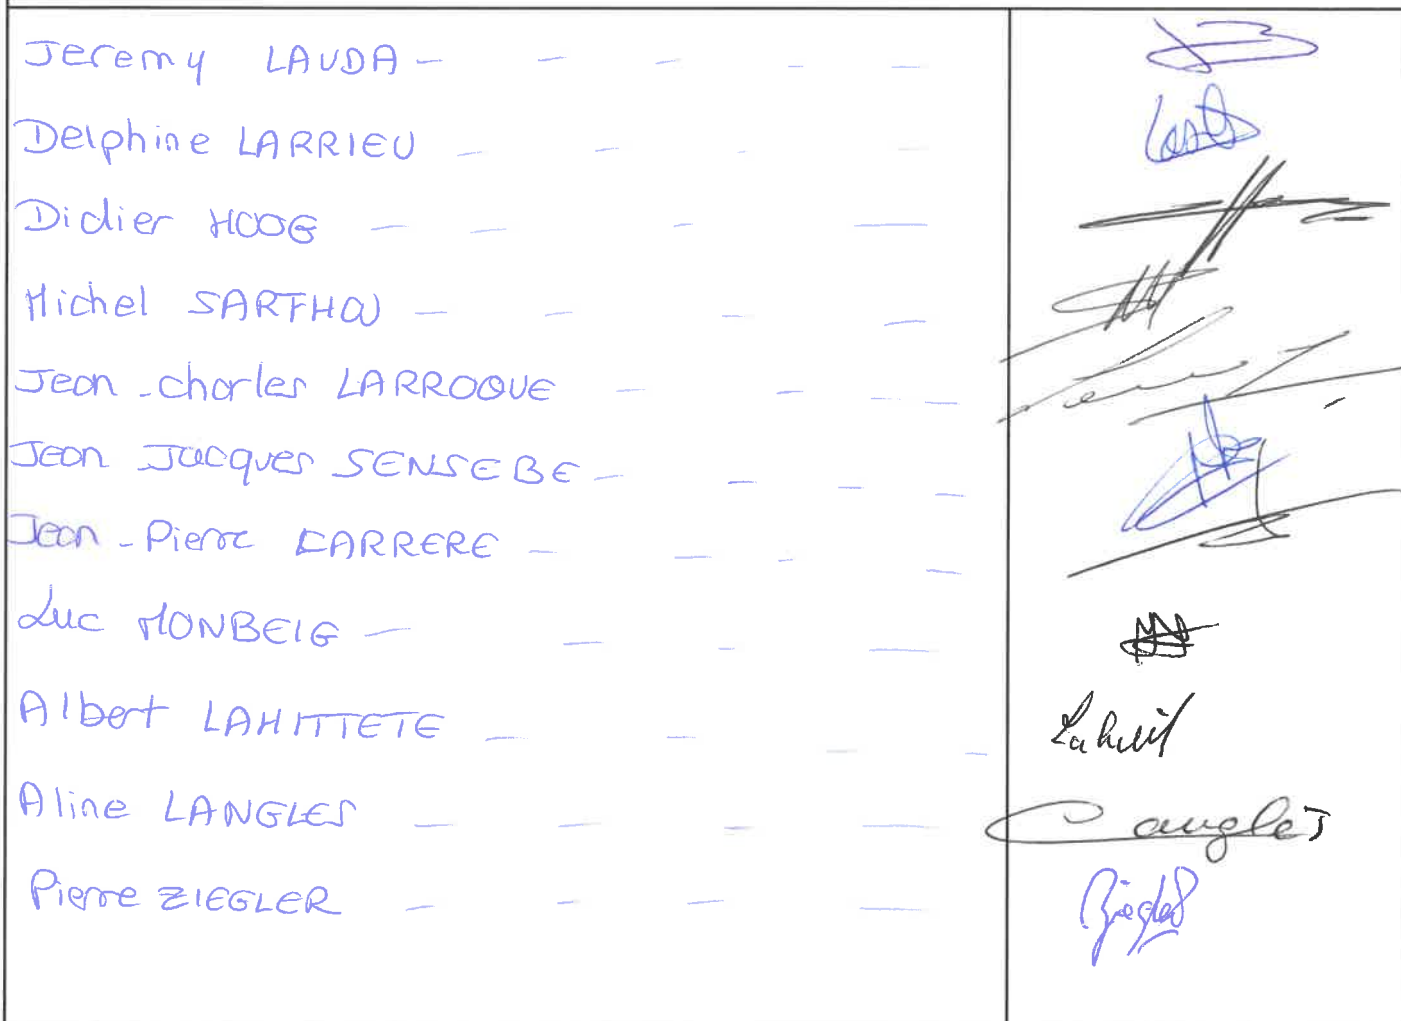 Jeremy LAUDA - - - - -
Delphine LARRIEU - - - -
Didier HOOG - - - -
Michel SARTHOU - - - -
Jean-charles LARROQUE - - - -
Jean Jacques SENSEBE - - - -
Jean-Pierre CARRERE - - - -
Luc MONBEIG - - - -
Albert LAHITTETE - - - -
Aline LANGLES - - - -
Pierre ZIEGLER - - - -